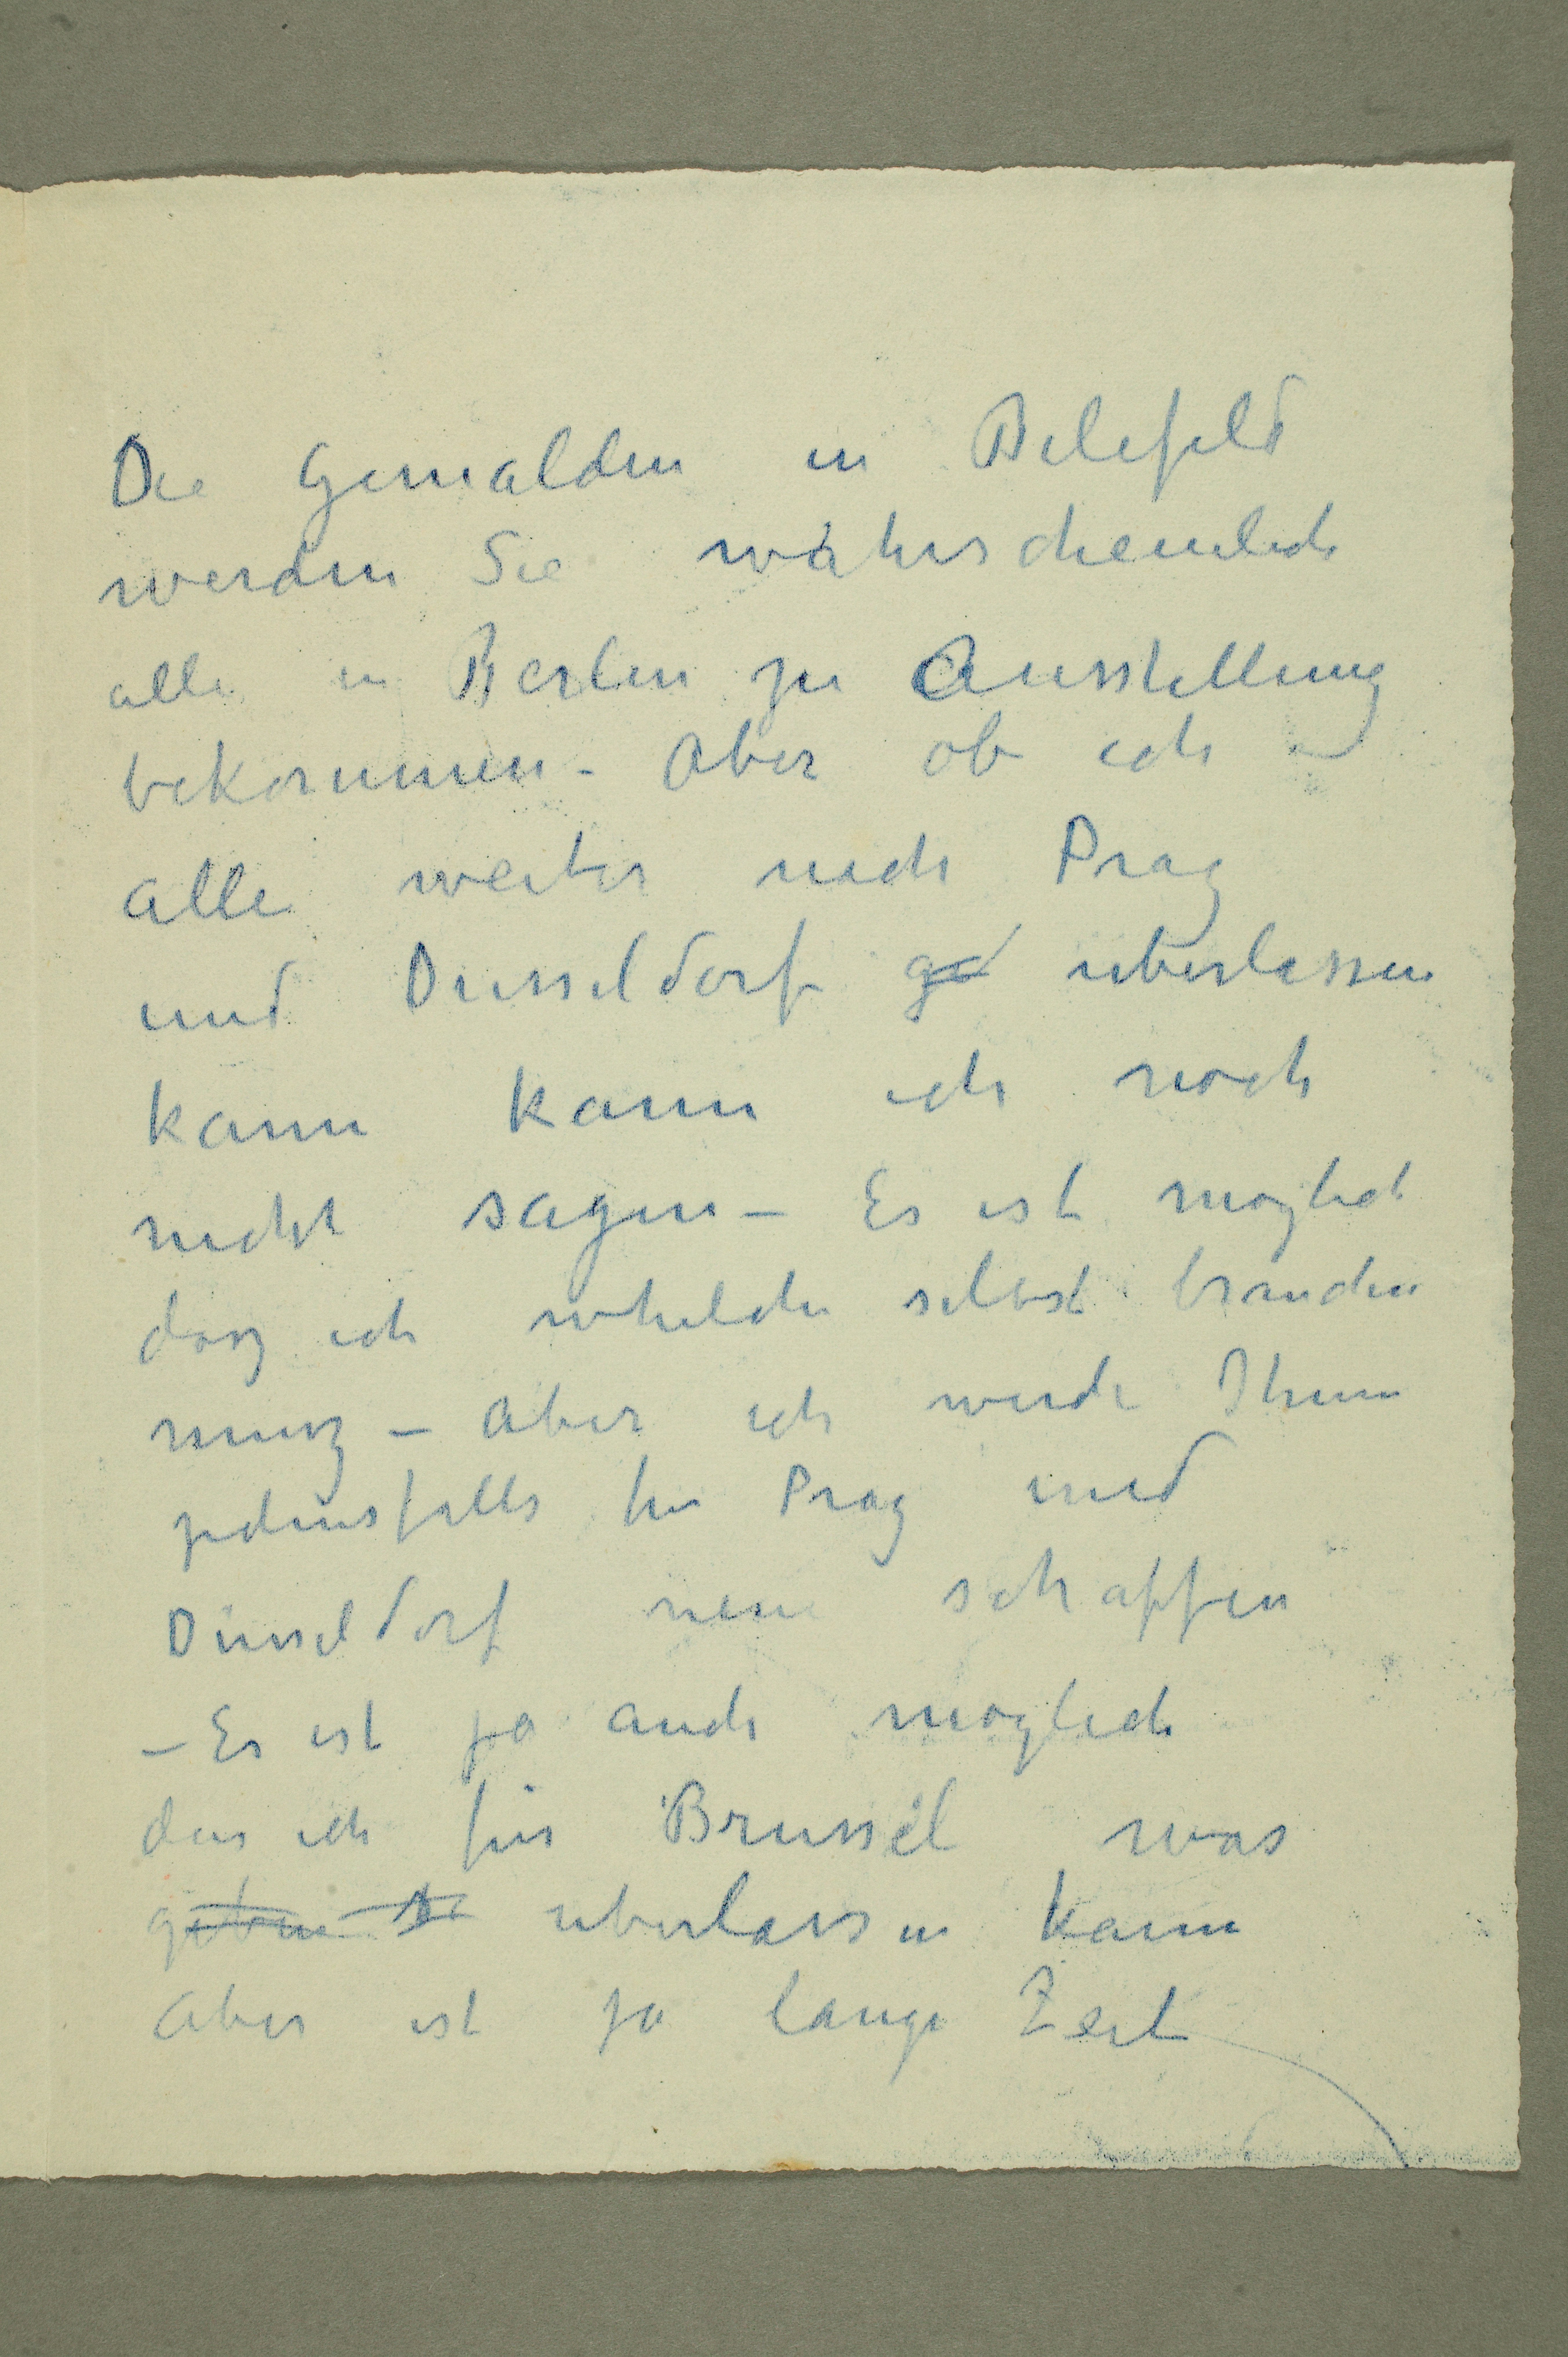 Die Gemälden in Bielefeld
werden Sie wahrscheinlich
alle in Berlin zu Ausstellung
bekommen – Aber ob ich
alle weiter nach Prag
und Dusseldorf ge uberlassen
kann kann ich noch
nicht sagen – Es ist moglich
dasz ich whelche selbst brauchen
musz – aber ich werde Ihnen
jedensfalls fur Prag und
Düsseldorf neue schaffen
– Es ist ja auch moglich
das ich für Brussel was
geben uberlassen kann
aber ist ja lange Zeit